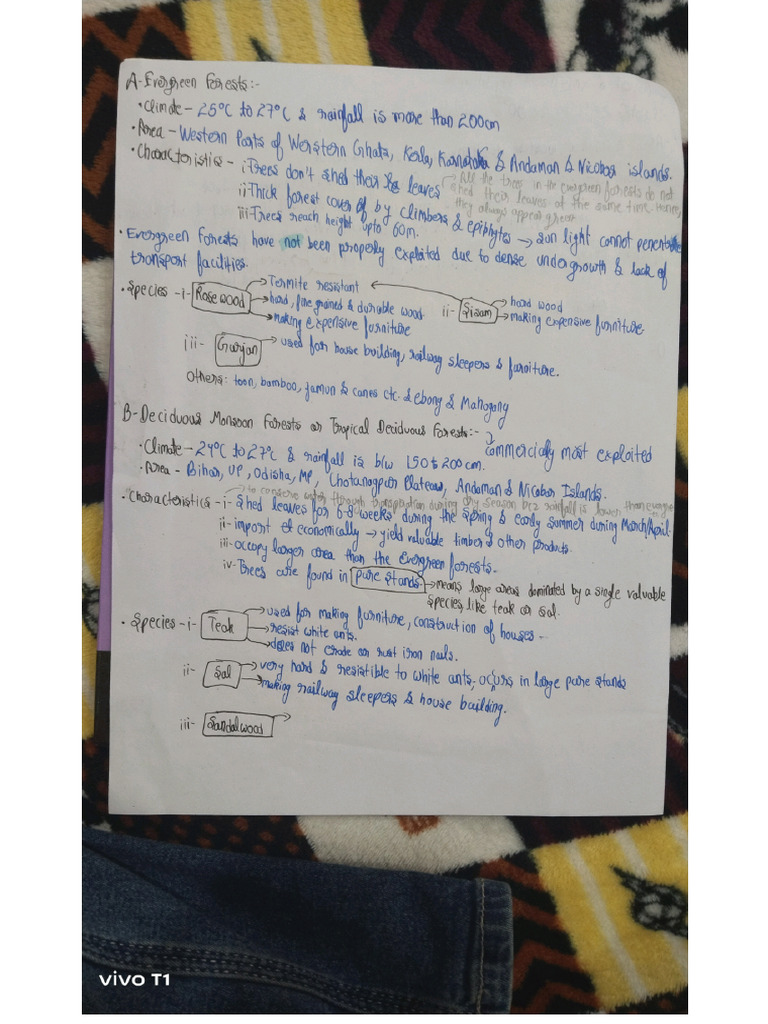 A-Evergreen Forests:-
• Climate - 25°C to 27°C & rainfall is more than 200cm
• Area - Western Parts of Werstern Ghats, Kerla, Karnataka & Andaman & Nicobar islands.
• Characteristics - i Trees don't shed their leaves
All the trees in the evergreen forests do not
shed their leaves at the same time. Hence,
they always appear green
ii Thick forest cover of by climbers & epiphytes → sun light cannot penentrate
iii- Trees reach height upto 60m.
• Evergreen Forests have not been properly exploited due to dense undergrowth & lack of
transport facilities.
• Species - i- Rose wood → Termite resistant
→ hard, fine grained & durable wood
→ making expensive furniture
ii- Sisam → hard wood
→ making expensive furniture
iii- Gurjan → used for house building, railway sleepers & furniture.
Others: toon, bamboo, jamun & canes etc. & ebony & Mahogany
B-Deciduous Monsoon Forests or Tropical Deciduous Forests:-
→ commercially most exploited
• Climate - 24°C to 27°C & rainfall is b/w 150 to 200cm.
• Area - Bihar, UP, Odisha, MP, Chotanagpur Plateau, Andaman & Nicobar Islands.
→ to conserve water through transpiration during dry season bcz rainfall is lower than evergreen
• Characteristics - i- Shed leaves for 6-8 weeks during the spring & early summer during March/April.
ii- import et economically → yield valuable timber & other products.
iii- occupy larger area than the Evergreen forests.
iv- Trees are found in pure stands → means large areas dominated by a single valuable
species, like teak or sal.
• Species - i- Teak → used for making furniture, construction of houses -
→ resist white ants.
→ does not erode or rust iron nails.
ii- Sal → very hard & resistible to white ants, occurs in large pure stands
→ making railway sleepers & house building.
iii- Sandalwood →
vivo T1